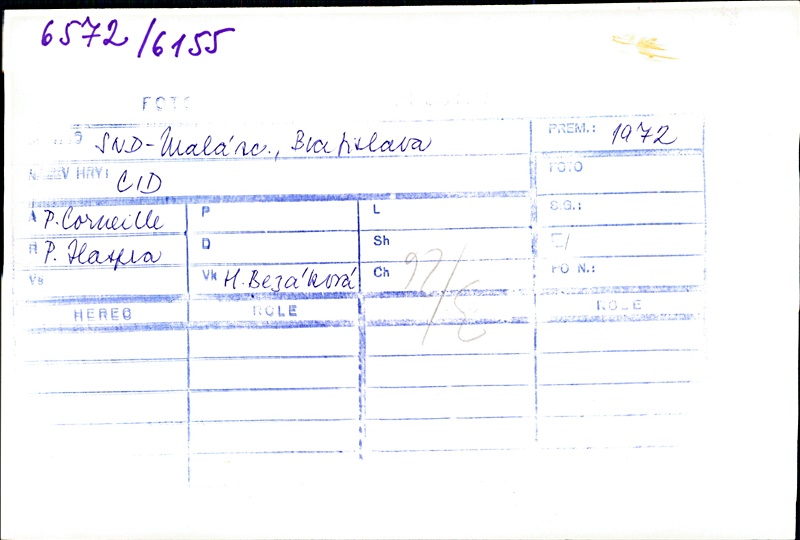 6572/6155
FOTO
SND-Malá sc., Bratislava PREM.: 1972
NÁZEV HRY: CID FOTO
A P. Corneille P L S.G.:
R P. Haspra D Sh
Vs Vk H. Bezáková Ch FO N.:
HEREC ROLE ROLE